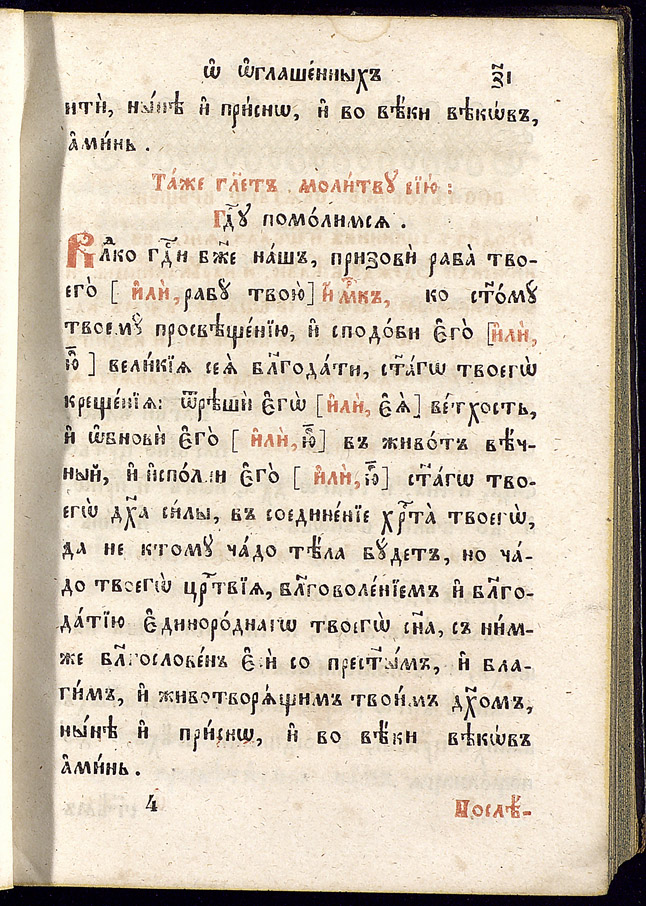 Ѡ҆ ѡ҆глаше́нныхъ з҃і
ити̑, ны́нѣ и҆ при́снѡ, и҆ во вѣ́ки вѣкѡ́въ,
а҆ми́нь .
Та́же гл҃етъ моли́тву сїю̀ :
Гдⷭ҇у помо́лимсѧ .
Влⷣко гдⷭ҇и бж҃е на́шъ, призовѝ раба̀ тво-
его̀ [ и҆лѝ, рабу̀ твою̀] и҆́м҃къ, ко ст҃о́му
твоему̀ просвѣще́нїю, и҆ сподо́би є҆го̀ [и҆лѝ,
ю҆̀ ] вели́кїѧ сеѧ̀ бл҃года́ти, ст҃а́гѡ твоегѡ̀
креще́нїѧ: ѿрѣшѝ є҆гѡ̀ [и҆лѝ, є҆ѧ̀] ве́тхость,
и҆ ѡ҆бновѝ є҆го̀ [ и҆лѝ, ю҆̀] въ живо́тъ вѣ́ч-
ный, и҆ и҆спо́лни є҆го̀ [ и҆лѝ, ю҆̀] ст҃а́гѡ тво-
егѡ̀ дх҃а си́лы, въ соедине́нїе хрⷭ҇та̀ твоегѡ̀,
да не ктому̀ ча́до тѣ́ла бу́детъ, но ча́-
до твоегѡ̀ црⷭ҇твїѧ, бл҃говоле́нїемъ и҆ бл҃го-
да́тїю є҆диноро́днагѡ твоегѡ̀ сн҃а, съ ни́м-
же бл҃гослове́нъ є҆сѝ со прест҃ы́мъ, и҆ бла-
ги́мъ, и҆ животворѧ́щимъ твои́мъ дх҃омъ,
ны́нѣ и҆ при́снѡ, и҆ во вѣ́ки вѣкѡ́въ
а҆ми́нь .
4 Послѣ́-